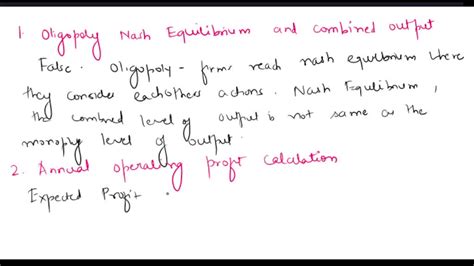 1. Oligopoly Nash Equilibrium and combined output
False. Oligopoly - firms reach nash equilibrium where
they consider eachothers actions. Nash Equilibrium,
the combined level of output is not same as the
monoply level of output.
2. Annual operating profit calculation
Expected Profit